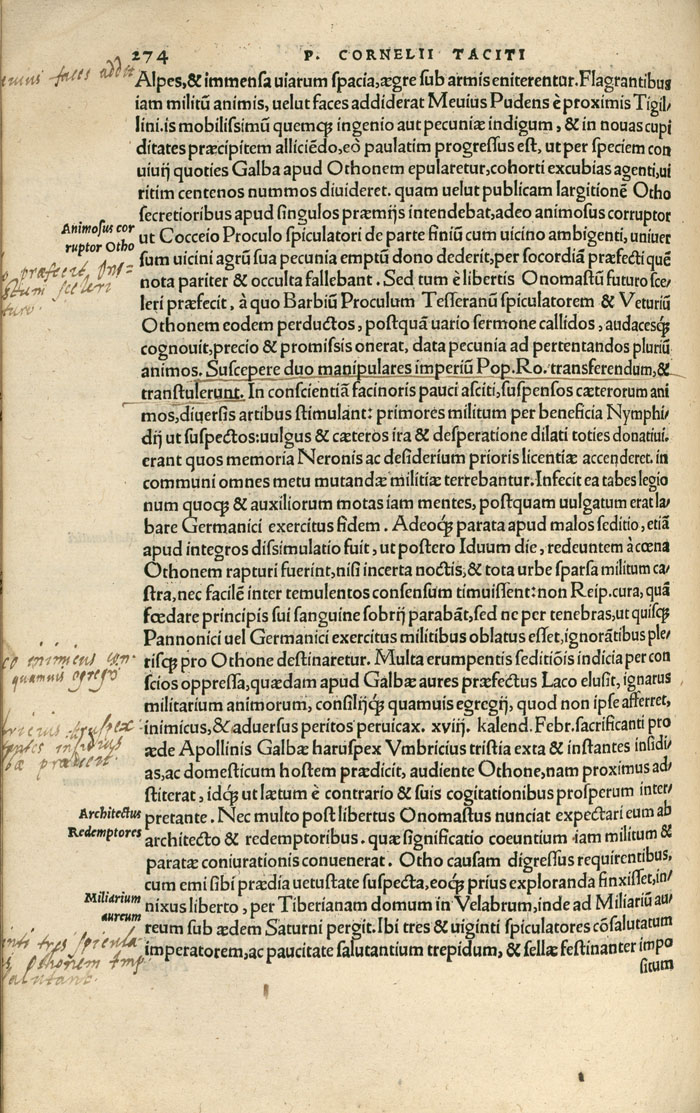 274 P. CORNELII TACITI
Alpes,& immensa uiarum spacia,ægre sub armis eniterentur.Flagrantibus
iam militũ animis, uelut faces addiderat Meuius Pudens è proximis Tigil/
lini.is mobilissimũ quemq; ingenio aut pecuniæ indigum, & in nouas cupi
ditates præcipitem alliciẽdo,eò paulatim progressus est, ut per speciem con
uiuij quoties Galba apud Othonem epularetur,cohorti excubias agenti,ui
ritim centenos nummos diuideret. quam uelut publicam largitionẽ Otho
secretioribus apud singulos præmijs intendebat,adeo animosus corruptor
Animosus cor
ruptor Otho
ut Cocceio Proculo spiculatori de parte finiũ cum uicino ambigenti, uniuer
sum uicini agrũ sua pecunia emptũ dono dederit,per socordiã præfecti quẽ
nota pariter & occulta fallebant. Sed tum è libertis Onomastũ futuro sce/
leri præfecit, à quo Barbiũ Proculum Tesseranũ spiculatorem & Veturiũ
Othonem eodem perductos, postquã uario sermone callidos, audacesq́;
cognouit,precio & promissis onerat, data pecunia ad pertentandos pluriũ
animos. Suscepere duo manipulares imperiũ Pop. Ro. transferendum,&
transtulerunt. In conscientiã facinoris pauci asciti,suspensos cæterorum ani
mos,diuersis artibus stimulant: primores militum per beneficia Nymphi/
dij ut suspectos:uulgus & cæteros ira & desperatione dilati toties donatiui.
erant quos memoria Neronis ac desiderium prioris licentiæ accenderet. in
communi omnes metu mutandæ militiæ terrebantur.Infecit ea tabes legio
num quoq; & auxiliorum motas iam mentes, postquam uulgatum erat la/
bare Germanici exercitus fidem. Adeoq́; parata apud malos seditio, etiã
apud integros dissimulatio fuit, ut postero Iduum die, redeuntem à cœna
Othonem rapturi fuerint,nisi incerta noctis,& tota urbe sparsa militum ca/
stra,nec facilẽ inter temulentos consensum timuissent: non Reip.cura, quã
fœdare principis sui sanguine sobrij parabãt,sed ne per tenebras,ut quisq;
Pannonici uel Germanici exercitus militibus oblatus esset,ignorãtibus ple/
risq; pro Othone destinaretur. Multa erumpentis seditiõis indicia per con
scios oppressa,quædam apud Galbæ aures præfectus Laco elusit, ignarus
militarium animorum, consilijq́; quamuis egregij, quod non ipse afferret,
inimicus,& aduersus peritos peruicax. xviij. kalend. Febr.sacrificanti pro
æde Apollinis Galbæ haruspex Vmbricius tristia exta & instantes insidi/
as,ac domesticum hostem prædicit, audiente Othone,nam proximus ad/
stiterat, idq́; ut lætum è contrario & suis cogitationibus prosperum inter/
Architectus
Redemptores
pretante. Nec multo post libertus Onomastus nunciat expectari eum ab
architecto & redemptoribus. quæ significatio coeuntium iam militum &
paratæ coniurationis conuenerat. Otho causam digressus requirentibus,
cum emi sibi prædia uetustate suspecta,eoq́; prius exploranda finxisset,in/
Miliarium
aureum
nixus liberto, per Tiberianam domum in Velabrum,inde ad Miliariũ au/
reum sub ædem Saturni pergit.Ibi tres & uiginti spiculatores cõsalutatum
imperatorem,ac paucitate salutantium trepidum, & sellæ festinanter impo
situm